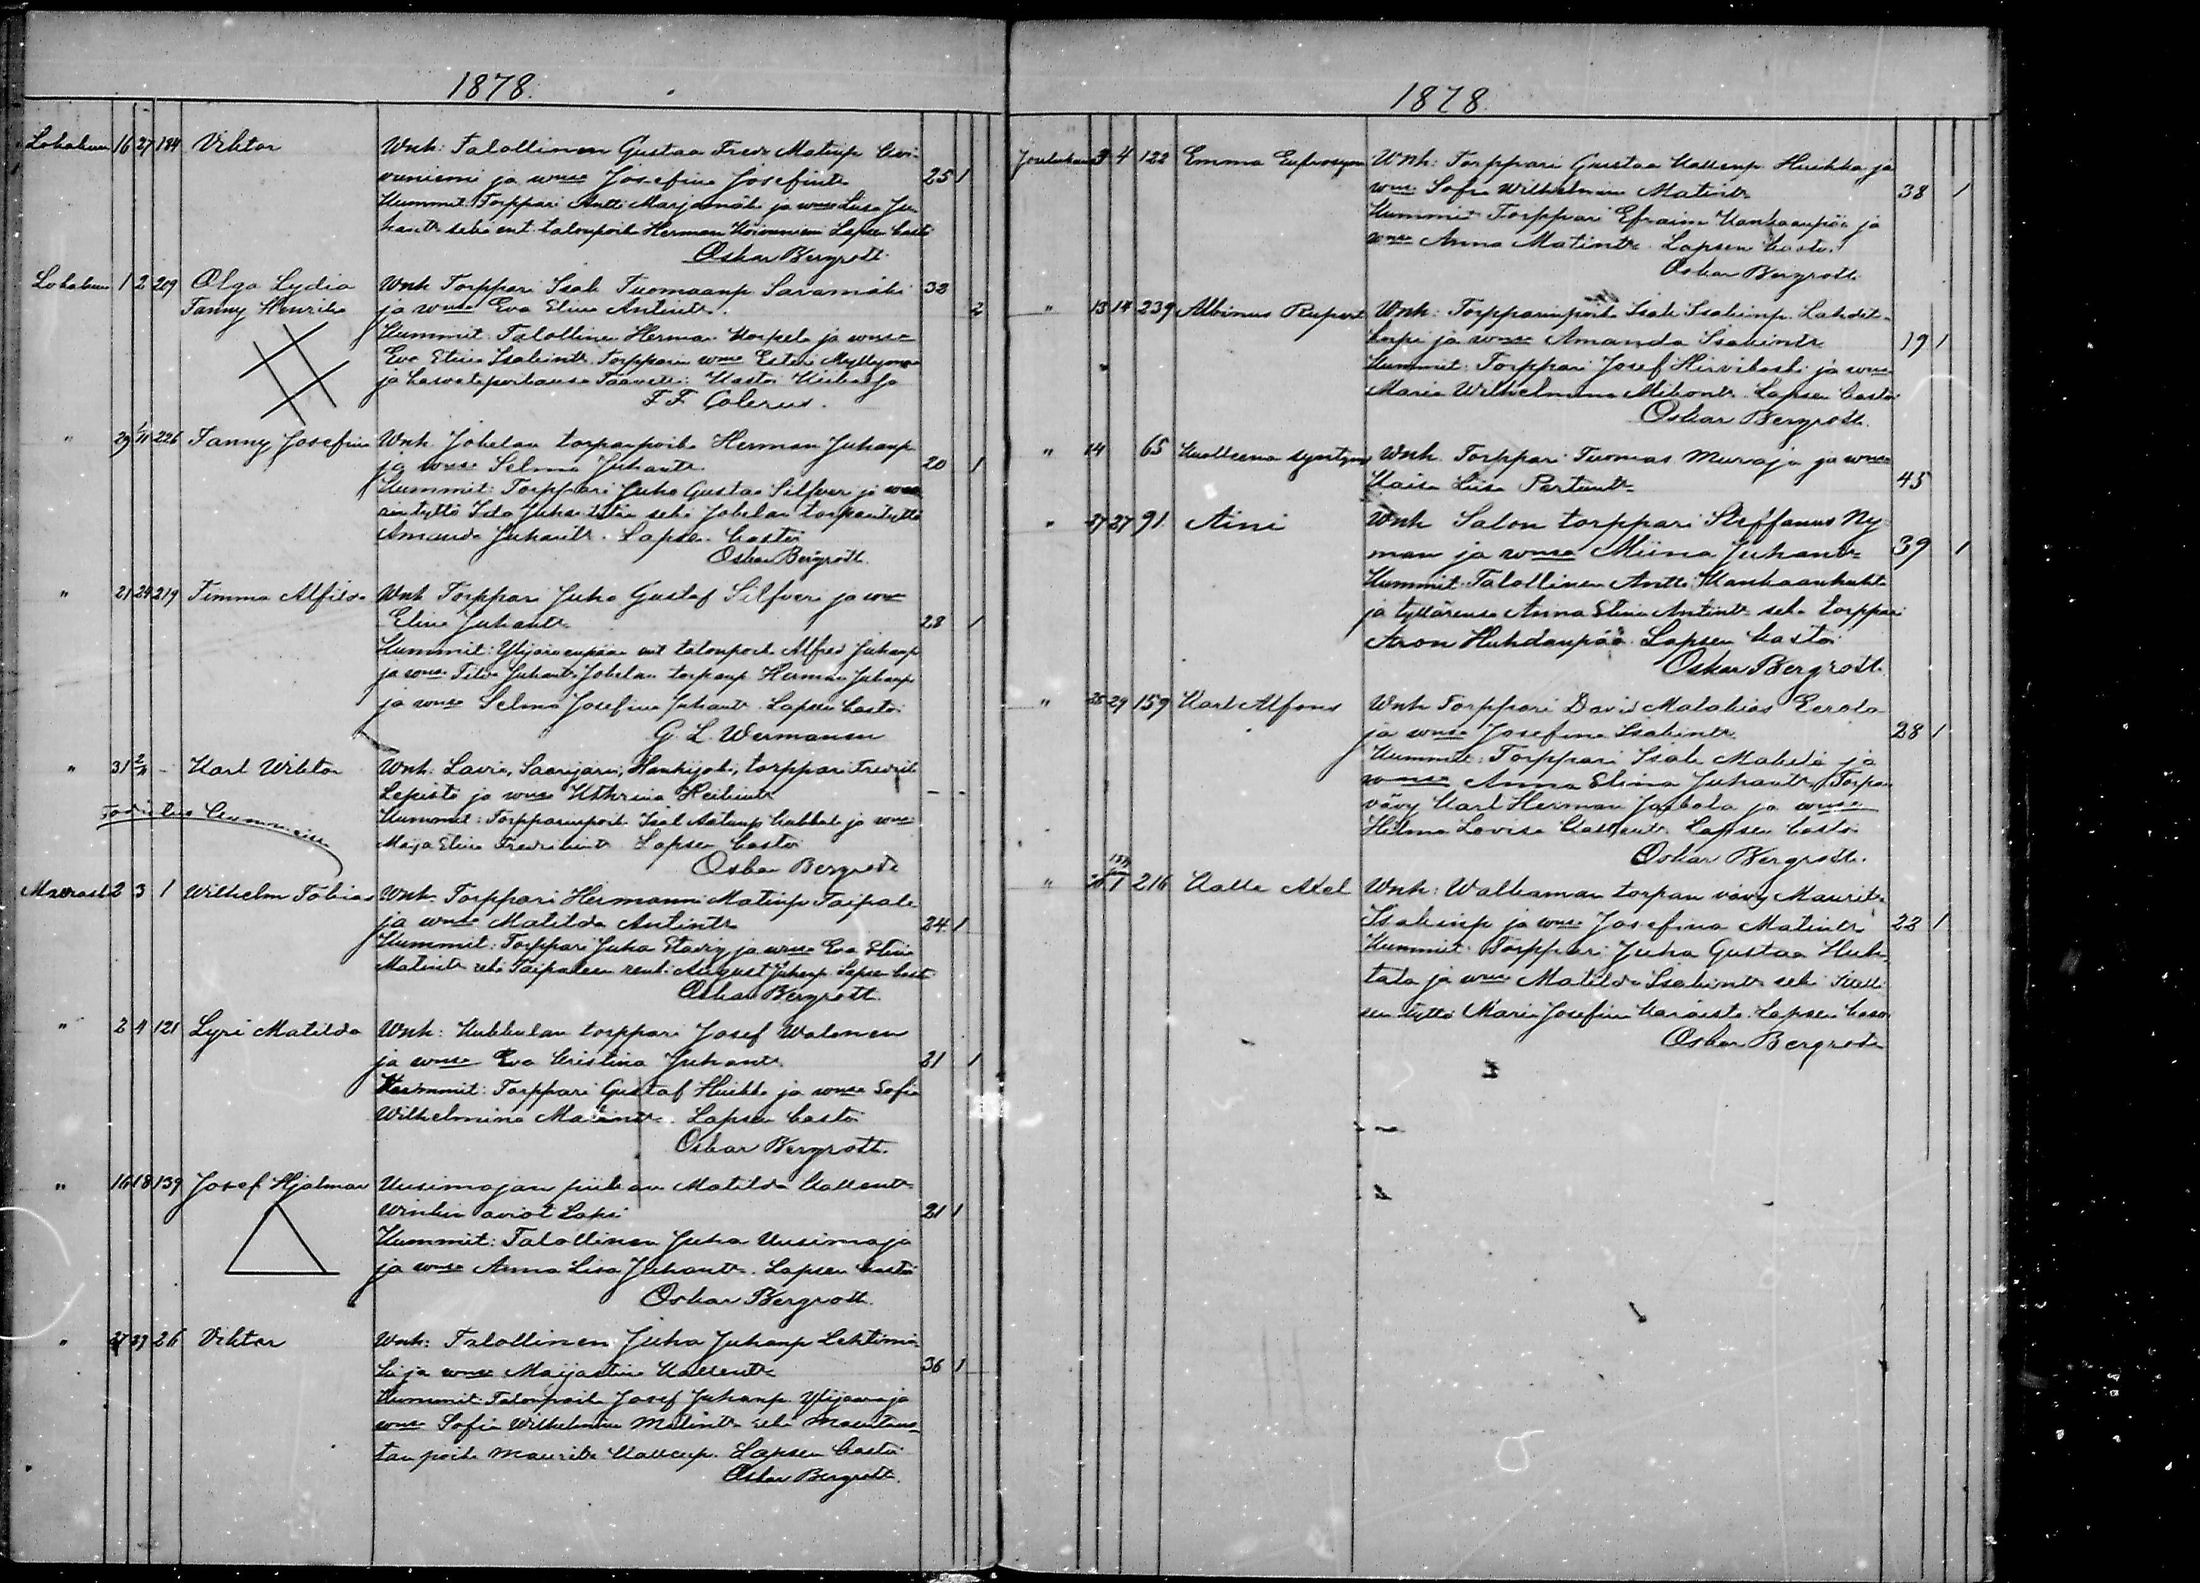 1878.
Lokakuu 16 27 194 Viktor Wnh: Talollinen Gustaa Fredr Matinp
vuniemi ja wmsa Josefina Josefintr 25 1
Kummit: Torppari Antti Marjamäki ja wmsa Liisa Ju-
hantr sekä ent. talonpoik Herman Koivuniemi Lapsen kastoi
Oskar Bergroth
Lokakuu 1 2 209 Olga Lydia Wnh Torppari Isak Tuomaanp Saramäki 32
Fanny Henrika ja wmsa Eva Elina Antintr. 2
Kummit: Talollinen Herman Korpela ja wmsa
Eva Elina Isakintr. Torpparin wmsa Esteri Myllymaa
ja kasvatepoikansa Taavetti: Kastoi Kirkkoh
F F Colerus.
" 29 1/11 226 Fanny Josefina Wnh. Jokelan torpanpoika Herman Juhanp
ja wmsa Selma Juhantr 20 1
Kummit: Torppari Juho Gustaa Silfver ja wmsa
tyttö Ida sekä Jokelan torpantyttö
Amanda Juhantr. Lapsen kastoi
Oskar Bergroth.
" 21 24 219 Fimma Alfilda Wnh Torppari Juho Gustaf Silfver ja wmsa
Elina Juhantr 28 1
Kummit: Ylijoenpään ent talonpoik Alfred Juhanp
ja wmsa Tilda Juhantr, Jokelan torpanp Herman Juhanp
ja wmsa Selma Josefina Juhantr. Lapsen kastoi
G. L. Wermanen
" 31 2/11 - Karl Wiktor Wnh: Lavia, Saarijärvi, Hankijoki, torppari Fredrik
Lepistö ja wmsa Heikintr - -
Kummit: Torpparinpoik. Isak Kabbel ja wmsa
Maja Elina Fredrikintr Lapsen kastoi
Oskar Bergroth
Marrask 2 3 1 Wilhelm Tobias Wnh. Torppari Hermanni Matinp Taipale
ja wmsa Matilda Antintr 24 1
Kummit: Torppari Juha ja wmsa Eva Elina
Matintr sekä Taipaleen renki August Juhanp Lapsen kast
Oskar Bergroth.
" 2 4 121 Lyri Matilda Wnh: Kukkulan torppari Josef Walonen
ja wmsa Eva Cristina Juhantr 21 1
Kummit: Torppari Gustaf Huikka ja wmsa Sofia
Wilhelmina Matintr. Lapsen kastoi
Oskar Bergroth.
" 16 18 139 Josef Hjalmar Uusimajan piikan Matilda Kallentr
aviot. Lapsi 21 1
Kummit: Talollinen Juha Uusimaja
ja wmsa Anna Lisa Juhantr. Lapsen kastoi
Oskar Bergroth.
" 27 29 26 Viktor Wnh: Talollinen Juha Juhanp Lehtimä-
ki ja wmsa Maijastina Kallentr 36 1
Kummit: Talonpoik Josef Juhanp Ylijoenpää ja
wmsa Sofia Wilhelmina Matintr sekä
tan poika Maurits Kallenp. Lapsen kastoi
Oskar Bergroth.
1878
Joulukuu 3 4 122 Emma Eufrosyna Wnh: Torppari Gustaa Kallenp Huikka ja
wmsa Sofia Wilhelmina Matintr 38 1
Kummit: Torppari Efraim Kankaanpää ja
wmsa Anna Matintr. Lapsen kastoi
Oskar Bergroth.
" 13 14 239 Albinus Rupert Wnh: Torpparinpoik Isak Isakinp Lahdet-
korpi ja wmsa Amanda Isakintr 19 1
Kummit: Torppari Josef Hirvikoski ja wmsa
Maria Wilhelmina Mikontr. Lapsen kastoi
Oskar Bergroth.
" 14 65 Kuolleena syntyny Wnh. Torppari Tuomas Muraja ja wmsa
Kaisa Liisa Pertuntr 45
" 27 27 91 Aini Wnh Salon torppari Steffanus Ny-
man ja wmsa Miina Juhantr 39 1
Kummit: Talollinen Antti Kankaanhuhta
ja tyttärensä Anna Elina Antintr sekä torppari
Aron Huhdanpää. Lapsen kastoi
Oskar Bergroth.
" 25 29 159 Karl Alfons Wnh Torppari David Malakias Eerola
ja wmsa Josefina Isakintr 28 1
Kummit: Torppari Isak Mäkelä ja
wmsa Anna Elina Juhantr, Torpan
vävy Karl Herman Jaakola ja wmsa
Hilma Lovisa Kallentr. Lapsen kastoi
Oskar Bergroth.
" 1 216 Kalle Axel Wnh: Walkaman torpan vävy Maurits
Isakinp ja wmsa Josefina Matintr 22 1
Kummit: Torppari Juha Gustaa Huh-
tala ja wmsa Matilda Isakintr sekä
sen tyttö Maria Josefina Karaistr. Lapsen kastoi
Oskar Bergroth